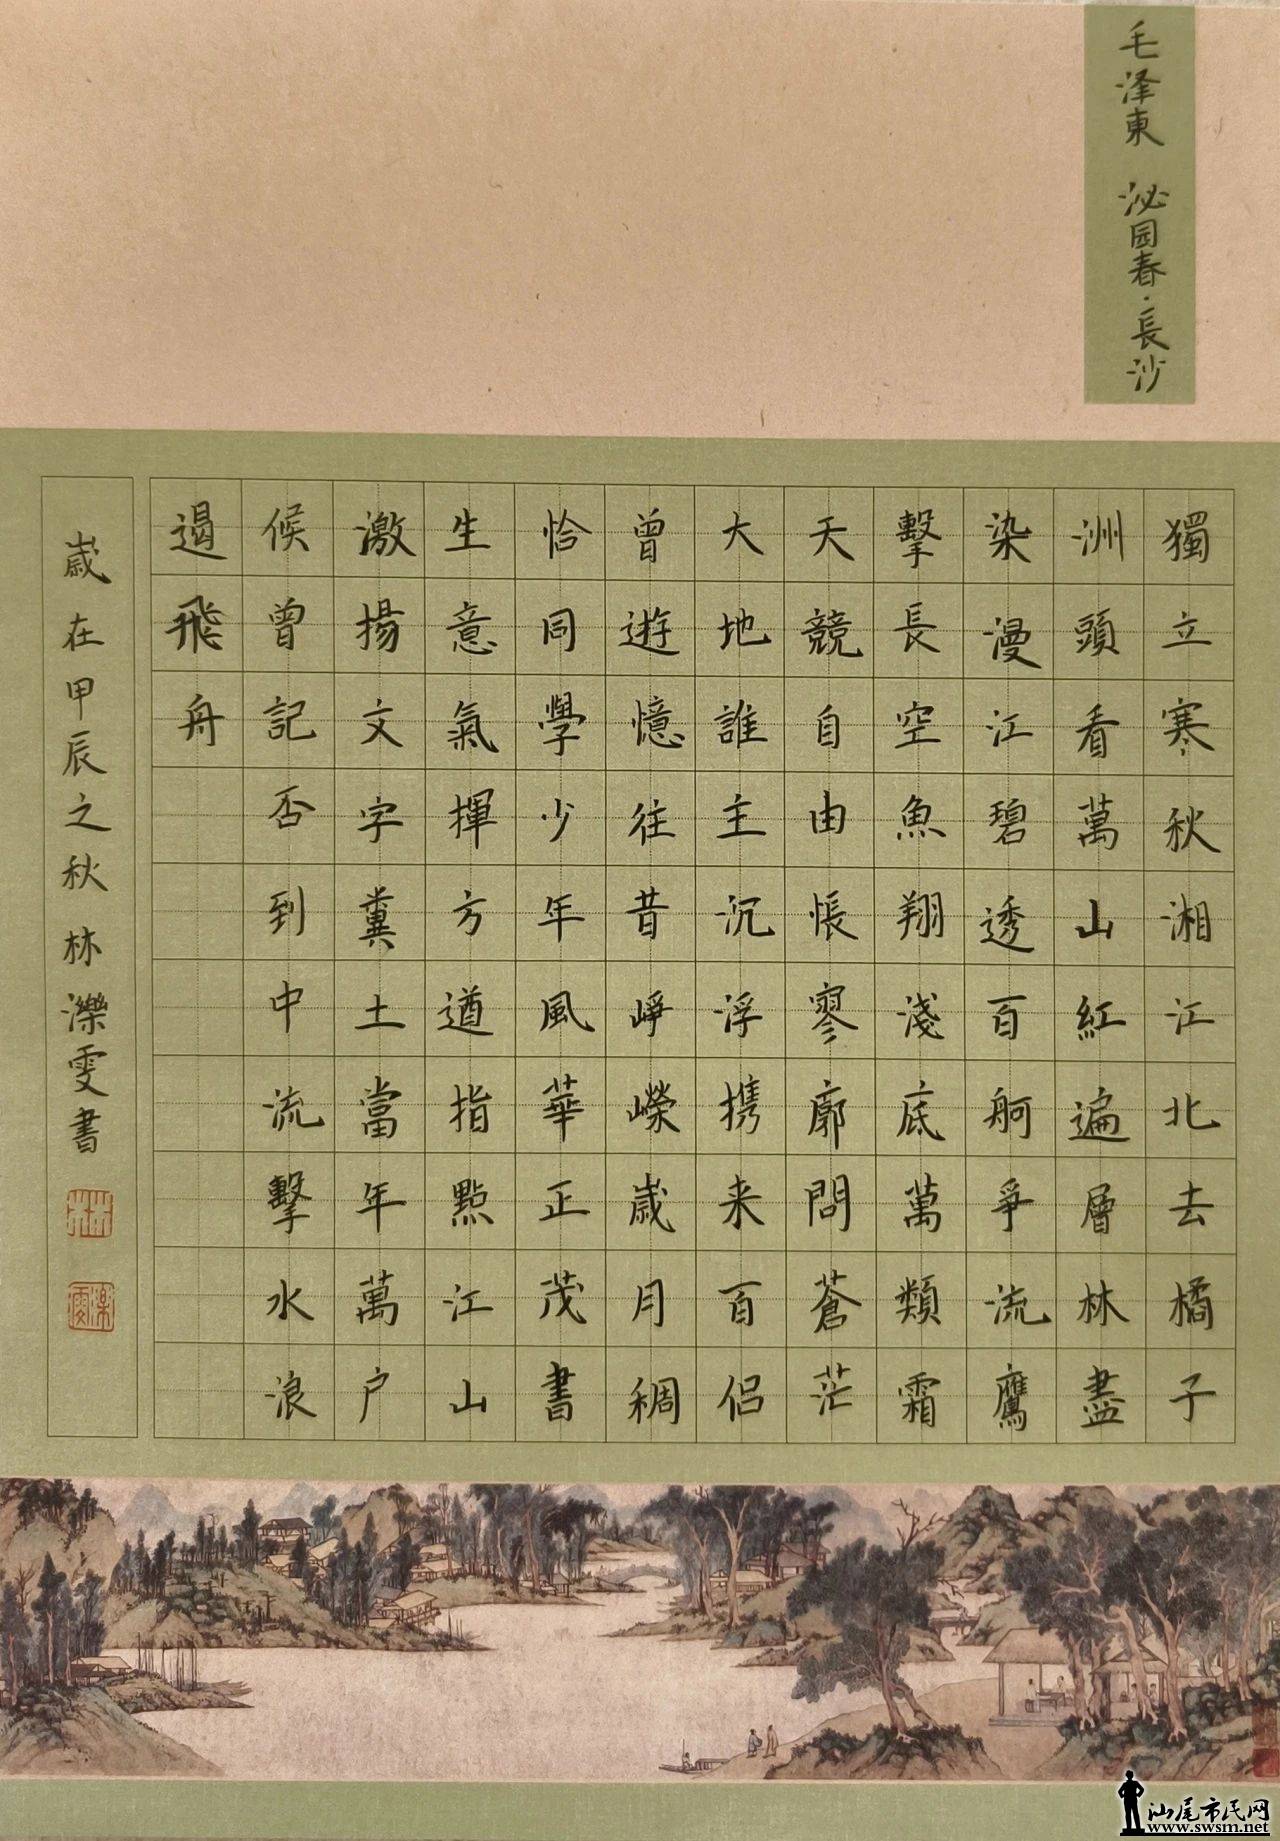 毛泽東 泌园春·長沙
獨立寒秋湘江北去橘子
洲頭看萬山紅遍層林盡
染漫江碧透百舸爭流鷹
擊長空魚翔淺底萬類霜
天競自由悵寥廓問蒼茫
大地誰主沉浮携来百侣
曾遊憶往昔崢嶸歲月稠
恰同學少年風華正茂書
生意氣揮方遒指點江山
激揚文字糞土當年萬户
候曾記否到中流擊水浪
遏飛舟
歲在甲辰之秋 林濼雯書
汕尾市民网
www.swsm.net